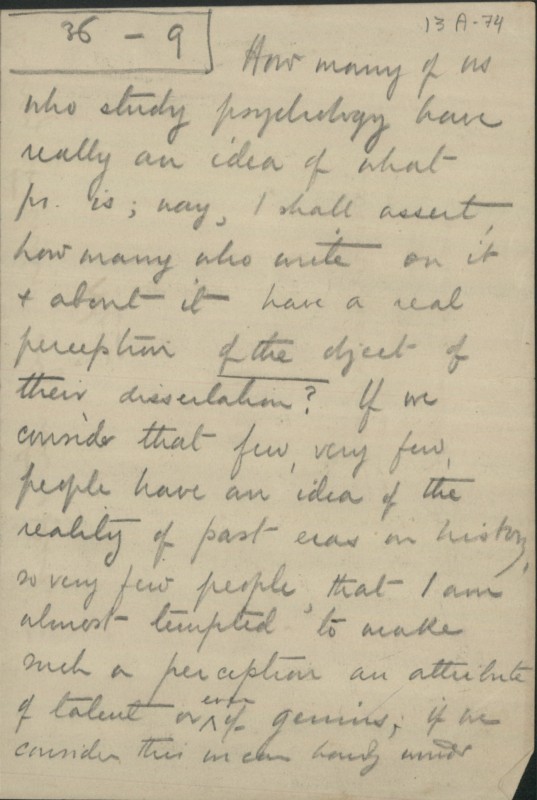 13 A-74
36 - 9
How many of us
who study psychology have
really an idea of what
ps. is; nay, I shall assert,
how many who write on it
+ about it have a real
perception of the object of
their dissertation? If we
consider that few, very few,
people have an idea of the
reality of past eras in history,
so very few people, that I am
almost tempted to make
such a perception an attribute
of talent or even of genius; if we
consider this we can hardly